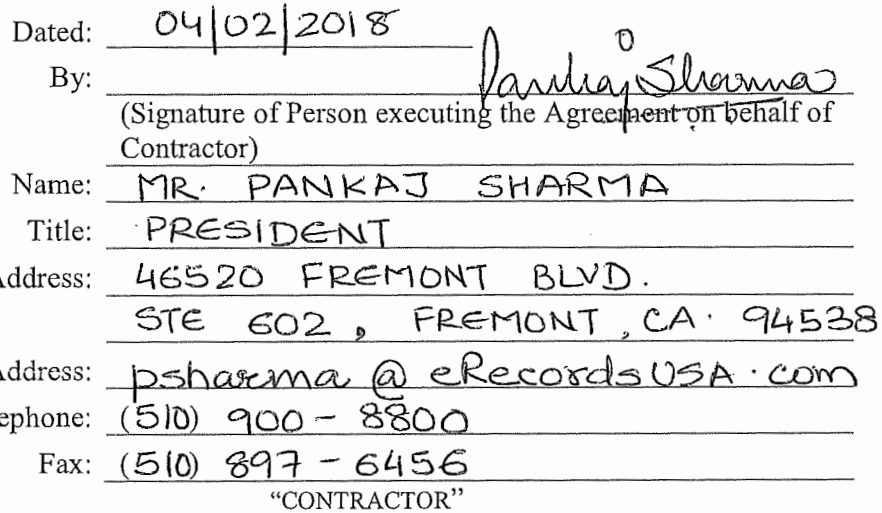 Dated: 04/02/2018
By: Pankaj Sharma
(Signature of Person executing the Agreement on behalf of
Contractor)
Name: MR. PANKAJ SHARMA
Title: PRESIDENT
Address: 46520 FREMONT BLVD.
STE 602, FREMONT, CA. 94538
Address: psharma @ eRecordsUSA.com
ephone: (510) 900-8800
Fax: (510) 897-6456
"CONTRACTOR"